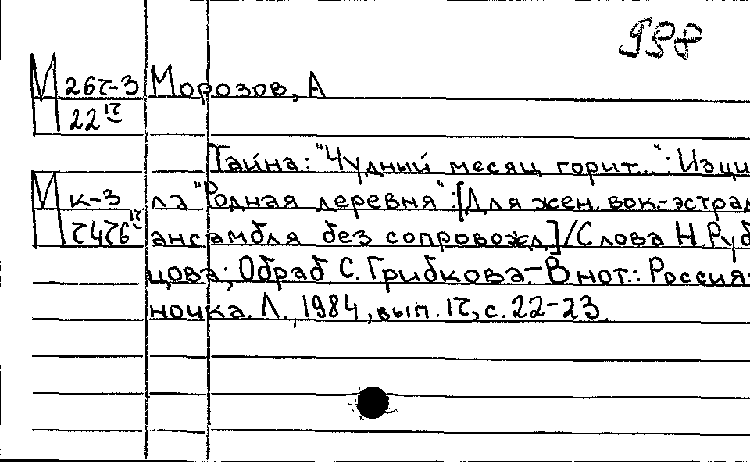 938
М 26г-3 Морозов, А
22 17
Тайна: "Чудный месяц горит...": Из ци
М к-3 лa "Родная деревня": [Для жен. вок.-эстрад
7476 17 ансамбля без сопровожд.]/Слова Н. Руб
цова; Обраб С. Грибкова.-В нот.: Россия-
ночка. Л., 1984, вып. 17, с. 22-23.